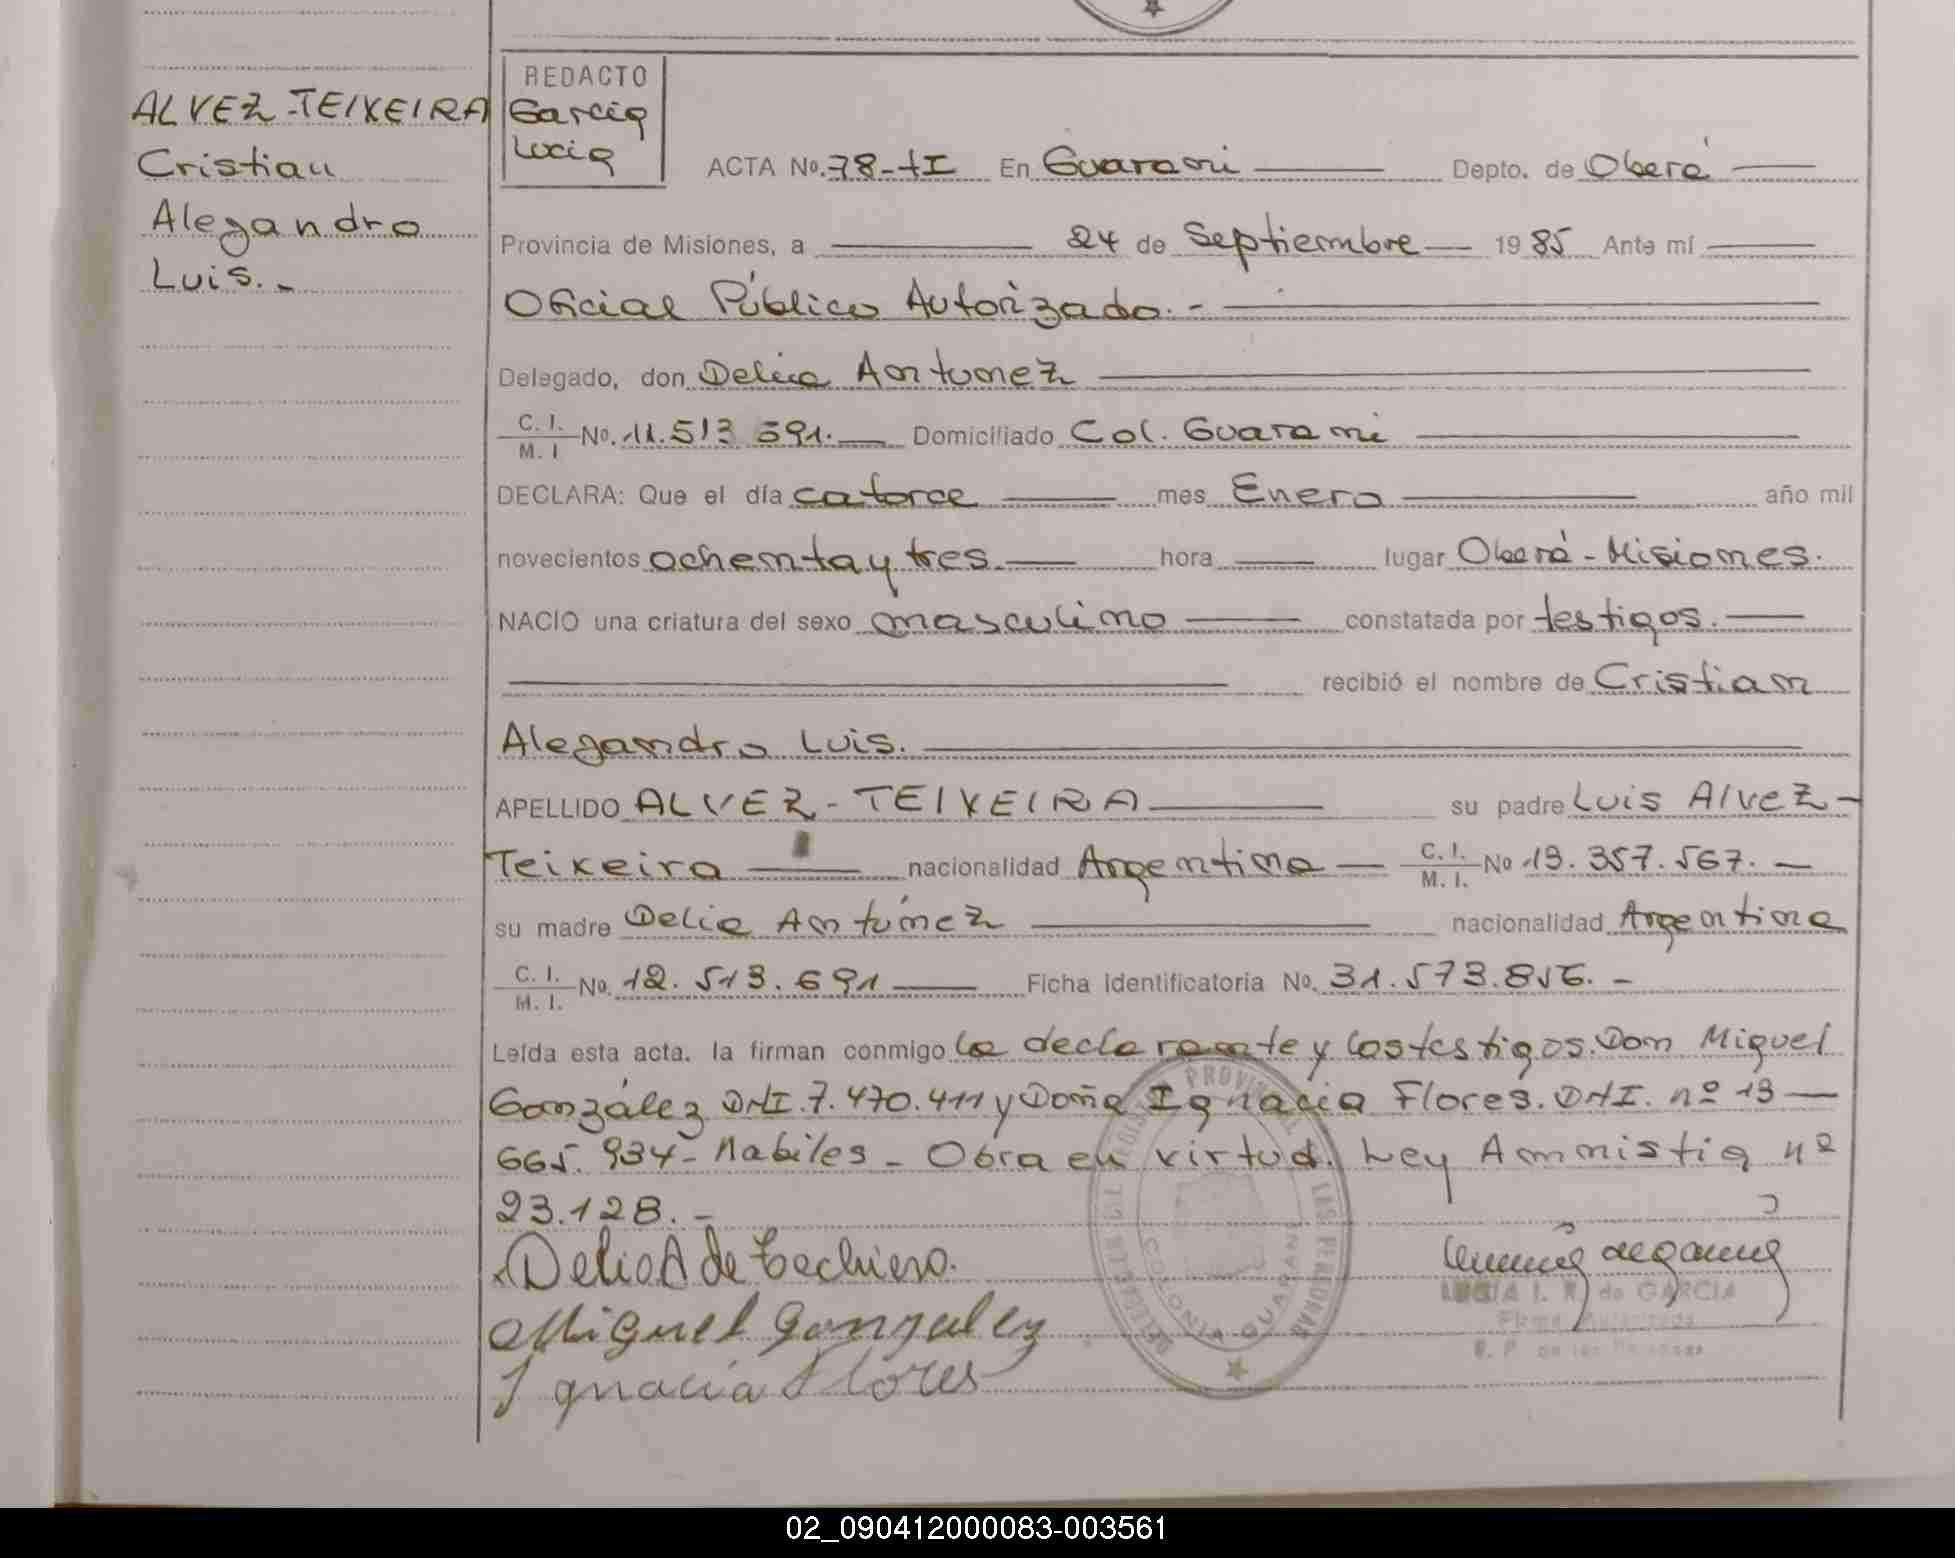 ALVEZ-TEIXEIRA
Cristian
Alegandro
Luis.-
REDACTO
Garcia
Lucia
ACTA No. 78-tI En Guarani Depto. de Oberá
Provincia de Misiones, a 24 de Septiembre 1985 Ante mí
Oficial Público Autorizado.-
Delegado, don Delia Antunez
C. I. / M. I No. 11.513 591. Domiciliado Col. Guarani
DECLARA: Que el día catorce mes Enero año mil
novecientos ochenta y tres hora lugar Oberá-Misiones.
NACIO una criatura del sexo masculino constatada por testigos.
recibió el nombre de Cristian
Alegandro Luis.
APELLIDO ALVEZ-TEIXEIRA su padre Luis Alvez-
Teixeira nacionalidad Argentina C. I. / M. I. No 19.357.567.
su madre Delia Antúnez nacionalidad Argentina
C. I. / M. I. No. 12.513.691 Ficha identificatoria No. 31.573.856.-
Leída esta acta, la firman conmigo la declarante y los testigos. Don Miguel
González DNI.7.470.411 y Doña Ignacia Flores. DNI. nº 13
665.934- Habiles - Obra en virtud. Ley Ammistia nº
23.128.-
Delia A de
Miguel Gonzalez
Ignacia Flores
PROVINCIAL
LAS PERSONAS
COLONIA GUARANI
LUCIA I. R. de GARCIA
Firma Autorizada
R. P. de las Personas
02_090412000083-003561